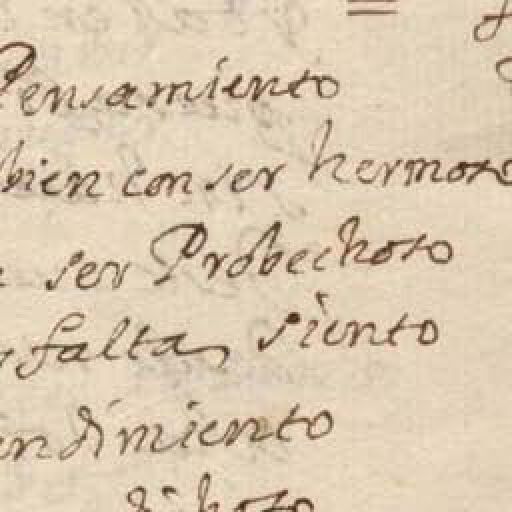 Pensamiento
bien con ser hermoso
ser Probechoso
falta, siento
endimiento
dichoso